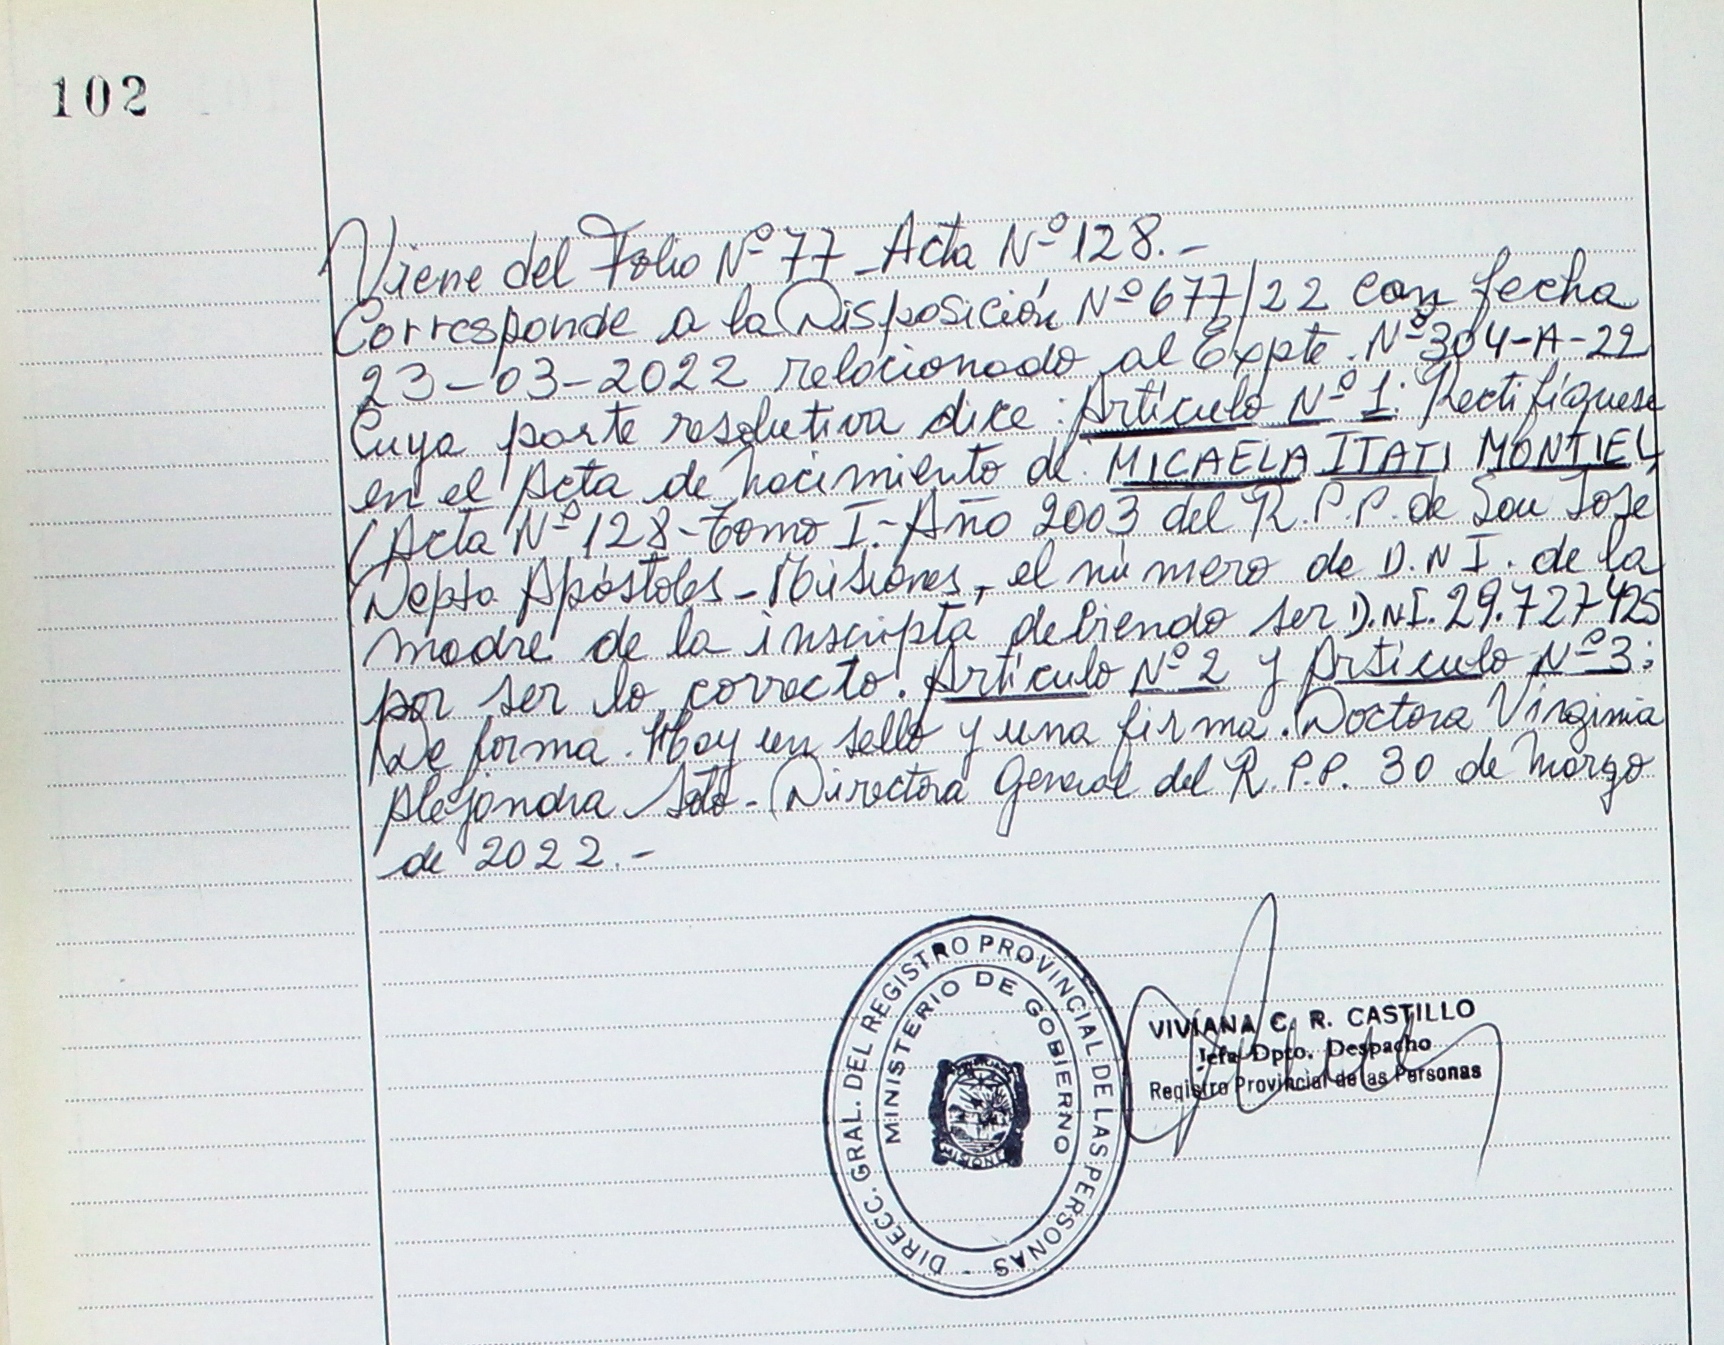 102
Viene del Folio Nº 77 - Acta Nº 128.-
Corresponde a la Disposición Nº 677/22 con fecha
23-03-2022 relacionado al Expte. Nº 304-A-22
Cuya parte resolutiva dice: Artículo Nº 1: Rectifíquese
en el Acta de nacimiento de MICAELA ITATI MONTIEL,
(Acta Nº 128-Tomo I.- Año 2003 del R.P.P. de San José
Depto Apóstoles - Misiones, el número de D.N.I. de la
madre de la inscripta debiendo ser D.N.I. 29.727425
por ser lo correcto. Artículo Nº 2 y Artículo Nº 3:
De forma. Hay un sello y una firma. Doctora Virginia
Alejandra Soto - Directora General del R.P.P. 30 de Marzo
de 2022.-
DIRECC. GRAL. DEL REGISTRO PROVINCIAL DE LAS PERSONAS -
MINISTERIO DE GOBIERNO
MISIONES
VIVIANA C. R. CASTILLO
Jefa Dpto. Despacho
Registro Provincial de las Personas